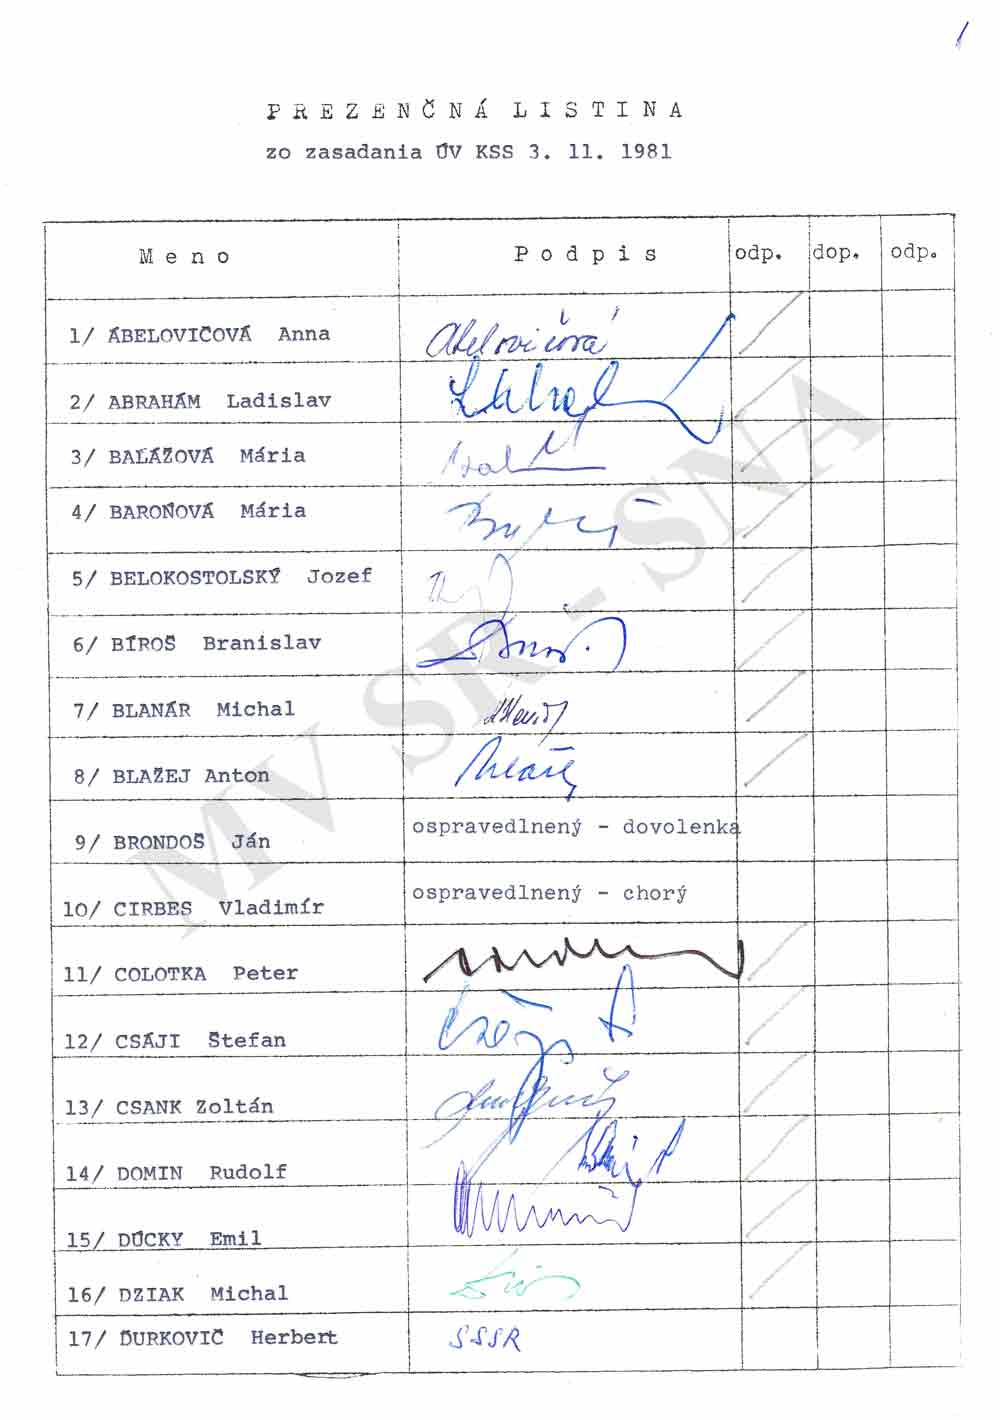 PREZENČNÁ LISTINA
zo zasadania ÚV KSS 3. 11. 1981
Meno Podpis odp. dop. odp.
1/ ÁBELOVIČOVÁ Anna Abelovičová
2/ ABRAHÁM Ladislav
3/ BAĽÁŽOVÁ Mária
4/ BAROŇOVÁ Mária
5/ BELOKOSTOLSKÝ Jozef
6/ BÍROŠ Branislav
7/ BLANÁR Michal
8/ BLAŽEJ Anton
9/ BRONDOŠ Ján ospravedlnený - dovolenka
10/ CIRBES Vladimír ospravedlnený - chorý
11/ COLOTKA Peter
12/ CSÁJI Štefan
13/ CSANK Zoltán
14/ DOMIN Rudolf
15/ DÚCKY Emil
16/ DZIAK Michal
17/ ĎURKOVIČ Herbert SSSR
MV SR - SNA